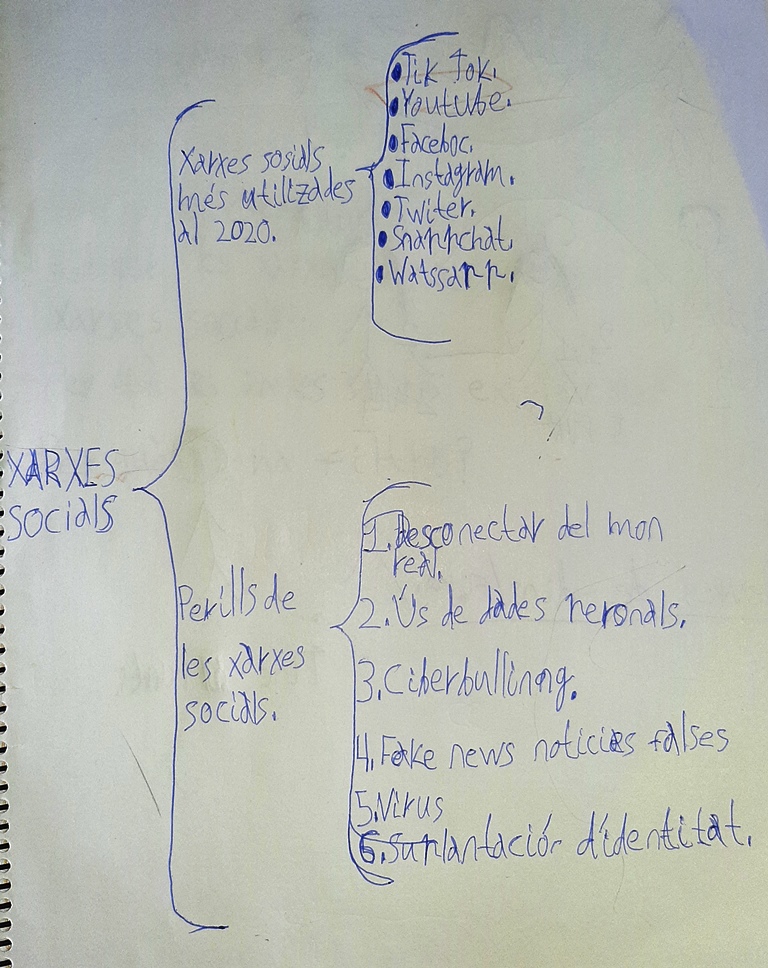 XARXES
SOCIALS
Xarxes sosials
més utilitzades
al 2020.
• Tik Tok.
• Youtube.
• Faceboc.
• Instagram.
• Twiter.
• Snappchat.
• Watssapp.
Perills de
les xarxes
socials.
1. Desconectar del mon
real.
2. Ús de dades personals.
3. Ciberbullinng.
4. Fake news noticies falses
5. Virus
6. Suplantación d'identitat.